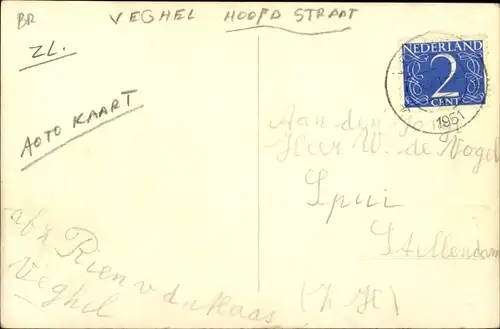 BR
VEGHEL HOOFD STRAAT
ZL.
AOTO KAART
NEDERLAND
2
CENT
1951
Aan den Jong
Heer W. de Vogel
Spui
Stellendam
(Z. H.)
afz Rien v d n Haas
Veghel